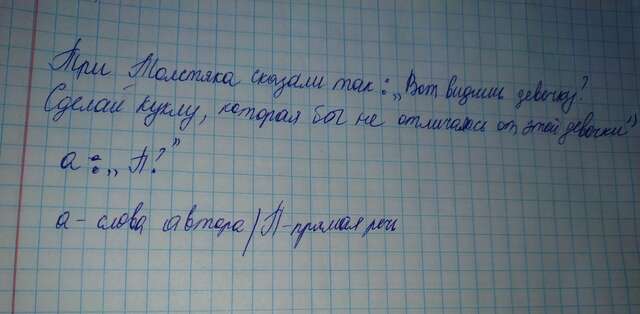 Три Толстяка сказали так: „Вот видишь девочку?
Сделай куклу, которая бы не отличалась от этой девочки"
а: „П?"
а - слова автора / П - прямая речь